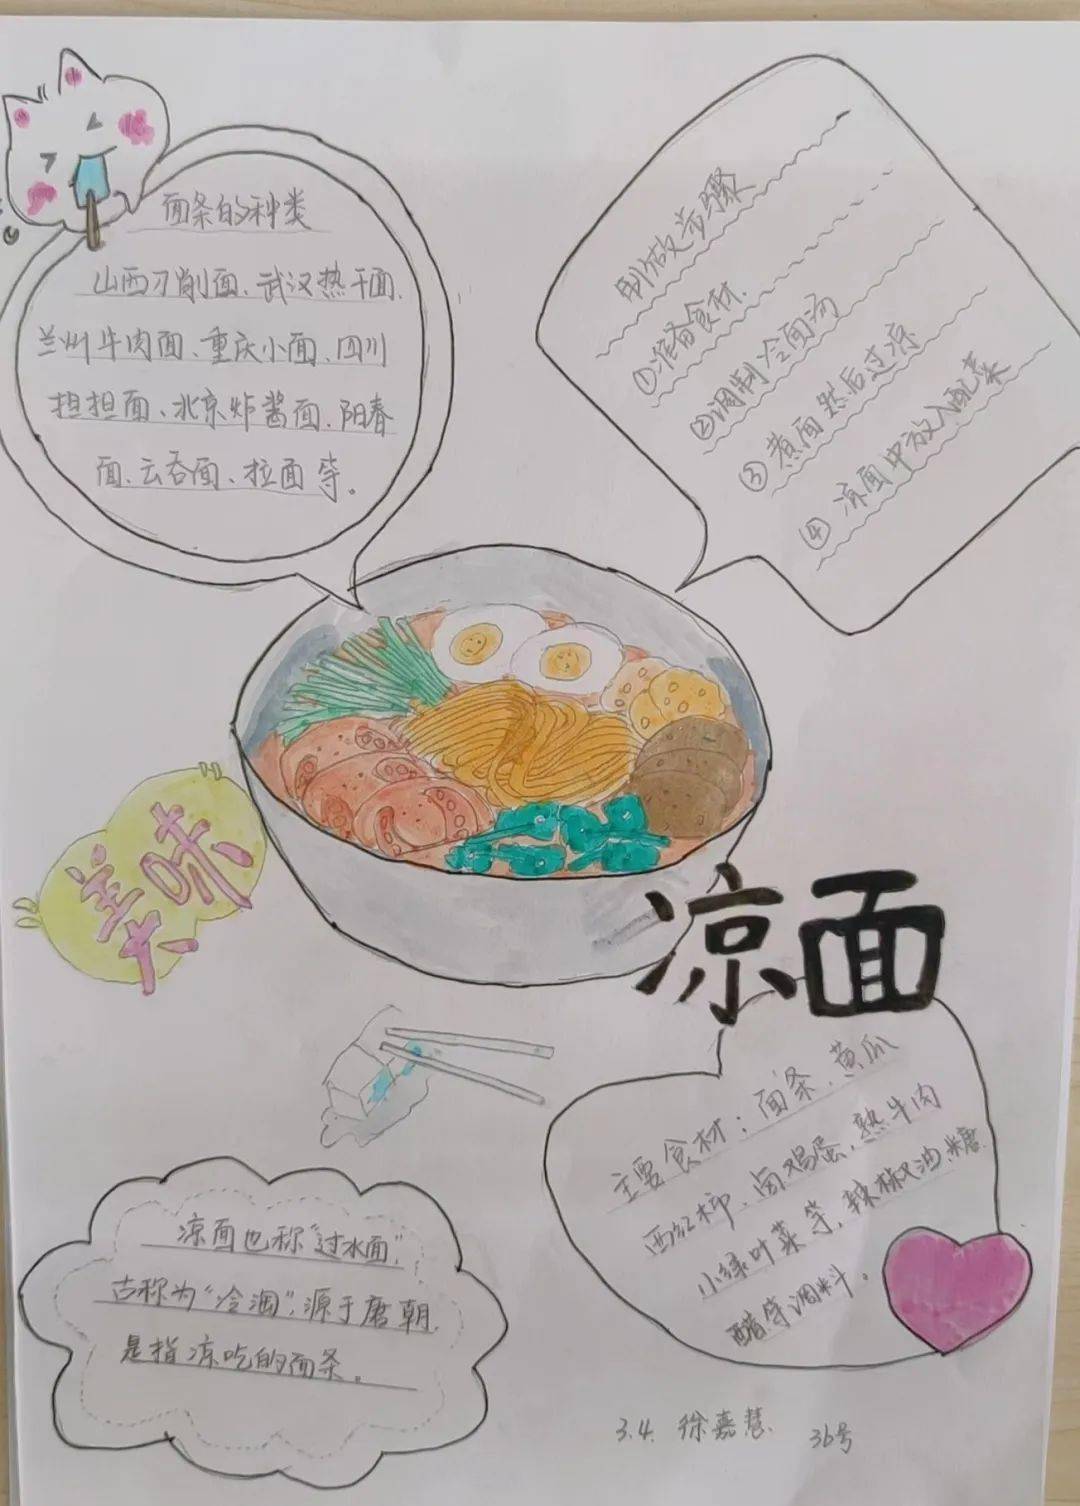 面条的种类
山西刀削面、武汉热干面、
兰州牛肉面、重庆小面、四川
担担面、北京炸酱面、阳春
面、云吞面、拉面等。
制做步骤
①准备食材.
②调制冷面汤
③煮面然后过凉
④凉面中放入配菜
美味
凉面
主要食材：面条、黄瓜
西红柿、卤鸡蛋、熟牛肉
小绿叶菜等，辣椒油、糖、
醋等调料。
凉面也称“过水面”，
古称为“冷淘”，源于唐朝，
是指凉吃的面条。
3.4. 徐嘉慧. 36号